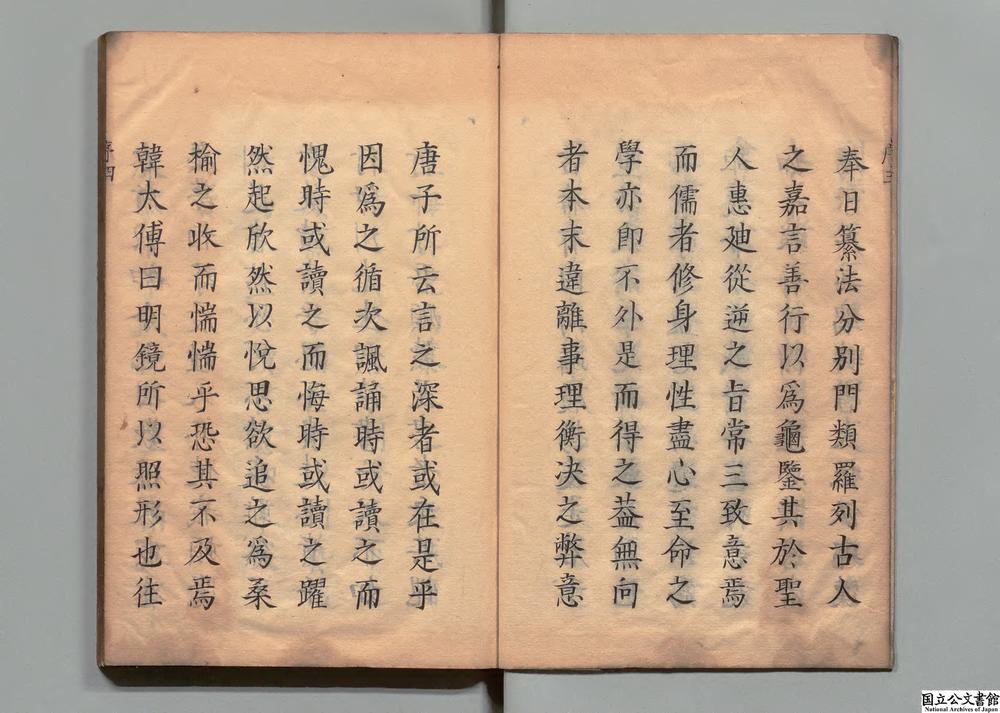 序三
奉日纂法分別門類羅列古人
之嘉言善行以爲龜鑒其於聖
人惠廸從逆之旨常三致意焉
而儒者修身理性盡心至命之
學亦卽不外是而得之葢無向
者本末違離事理衡决之弊意
唐子所云言之深者或在是乎
因爲之循次諷誦時或讀之而
愧時或讀之而悔時或讀之躍
然起欣然以悅思欲追之爲桑
榆之收而惴惴乎恐其不及焉
韓太傅曰明鏡所以照形也往
序四
国立公文書館
National Archives of Japan